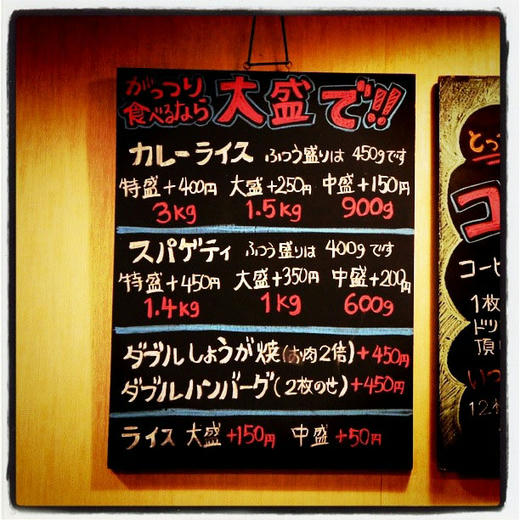 がっつり
食べるなら 大盛で!!
カレーライス ふつう盛りは 450gです
特盛+400円 大盛+250円 中盛+150円
3kg 1.5kg 900g
スパゲティ ふつう盛りは 400gです
特盛+450円 大盛+350円 中盛+200円
1.4kg 1kg 600g
ダブルしょうが焼(お肉2倍)+450円
ダブルハンバーグ(2枚のせ)+450円
ライス 大盛+150円 中盛+50円
とっ
コ
コーヒ
1枚
ドッ
頂
いつ
12